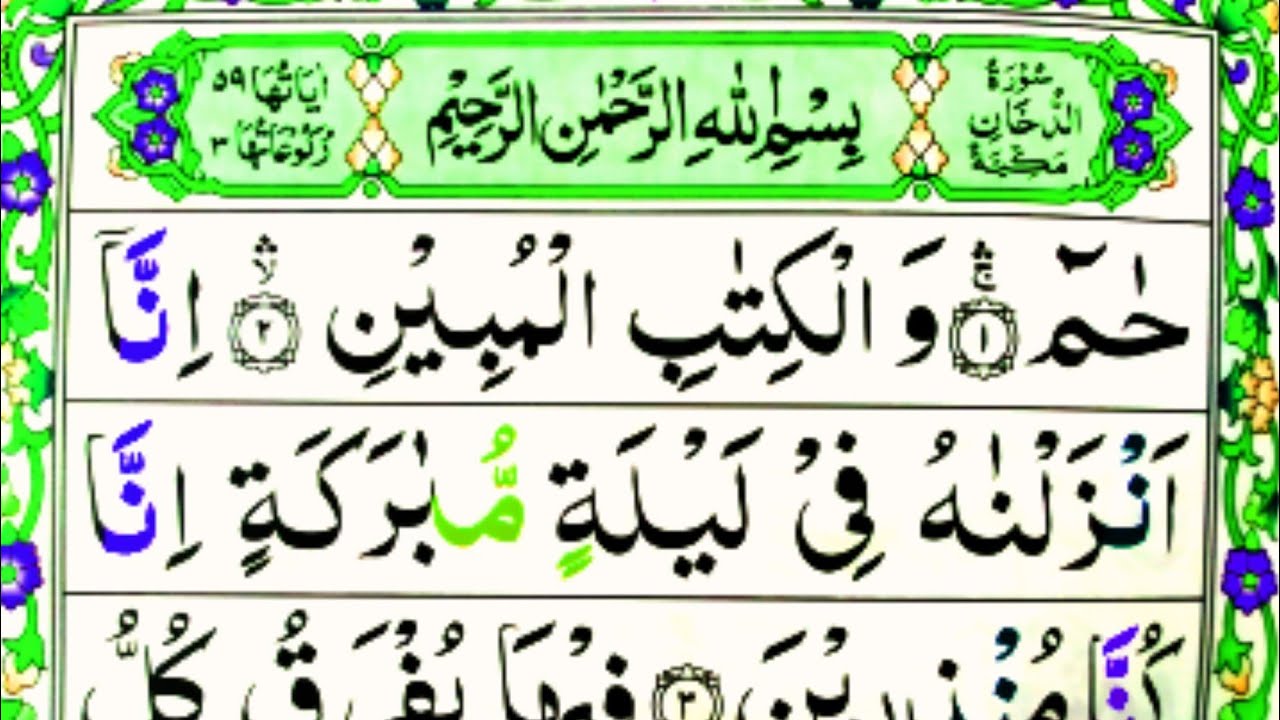 سُوْرَةُ
الدُّخَانِ
مَكِّيَّةٌ
بِسْمِ اللّٰهِ الرَّحْمٰنِ الرَّحِيْمِ
اٰيَاتُهَا ٥٩
رُكُوْعَاتُهَا ٣
حٰمٓ ۚۛ ۝١ وَ الْكِتٰبِ الْمُبِيْنِ ۙۛ ۝٢ اِنَّاۤ
اَنْزَلْنٰهُ فِيْ لَيْلَةٍ مُّبٰرَكَةٍ اِنَّا
كُنَّا مُنْذِرِيْنَ ۝٣ فِيْهَا يُفْرَقُ كُلُّ